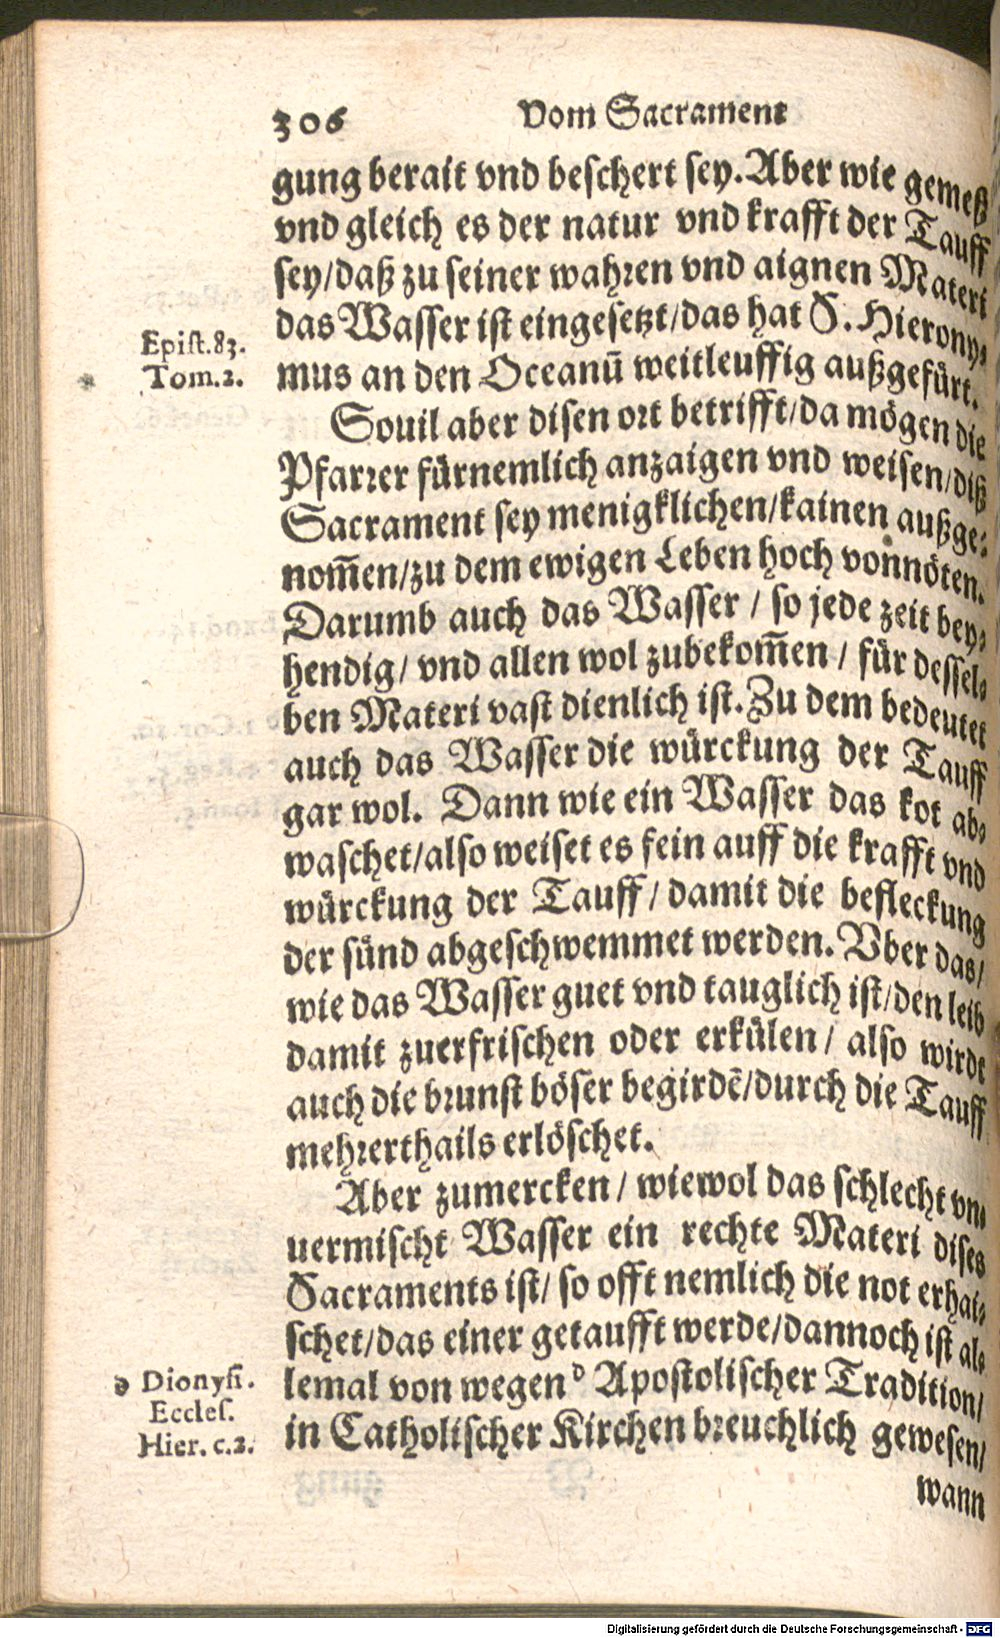 306 Vom Sacrament
gung berait vnd beschert sey. Aber wie gemeß
vnd gleich es der natur vnd krafft der Tauff
sey/daß zu seiner wahren vnd aignen Materi
das Wasser ist eingesetzt/das hat S. Hierony⸗
Epist. 83.
Tom. 2.
mus an den Oceanū weitleuffig außgefürt.
Souil aber disen ort betrifft/da mögen die
Pfarrer fürnemlich anzaigen vnd weisen/diß
Sacrament sey menigklichen/kainen außge⸗
nom̄en/zu dem ewigen Leben hoch vonnöten.
Darumb auch das Wasser / so jede zeit bey⸗
hendig/ vnd allen wol zubekom̄en / für dessel⸗
ben Materi vast dienlich ist. Zu dem bedeutet
auch das Wasser die würckung der Tauff
gar wol. Dann wie ein Wasser das kot ab⸗
waschet/also weiset es fein auff die krafft vnd
würckung der Tauff/ damit die befleckung
der sünd abgeschwemmet werden. Vber das/
wie das Wasser guet vnd tauglich ist/den leib
damit zuerfrischen oder erkülen/ also wirdt
auch die brunst böser begirdē/durch die Tauff
mehrerthails erlöschet.
Aber zumercken/ wiewol das schlecht vn⸗
uermischt Wasser ein rechte Materi dises
Sacraments ist/ so offt nemlich die not erhai⸗
schet/das einer getaufft werde/dannoch ist al⸗
lemal von wegen ᵈ Apostolischer Tradition/
in Catholischer Kirchen breuchlich gewesen/
d Dionysi.
Eccles.
Hier. c. 2.
wann
Digitalisierung gefördert durch die Deutsche Forschungsgemeinschaft - DFG